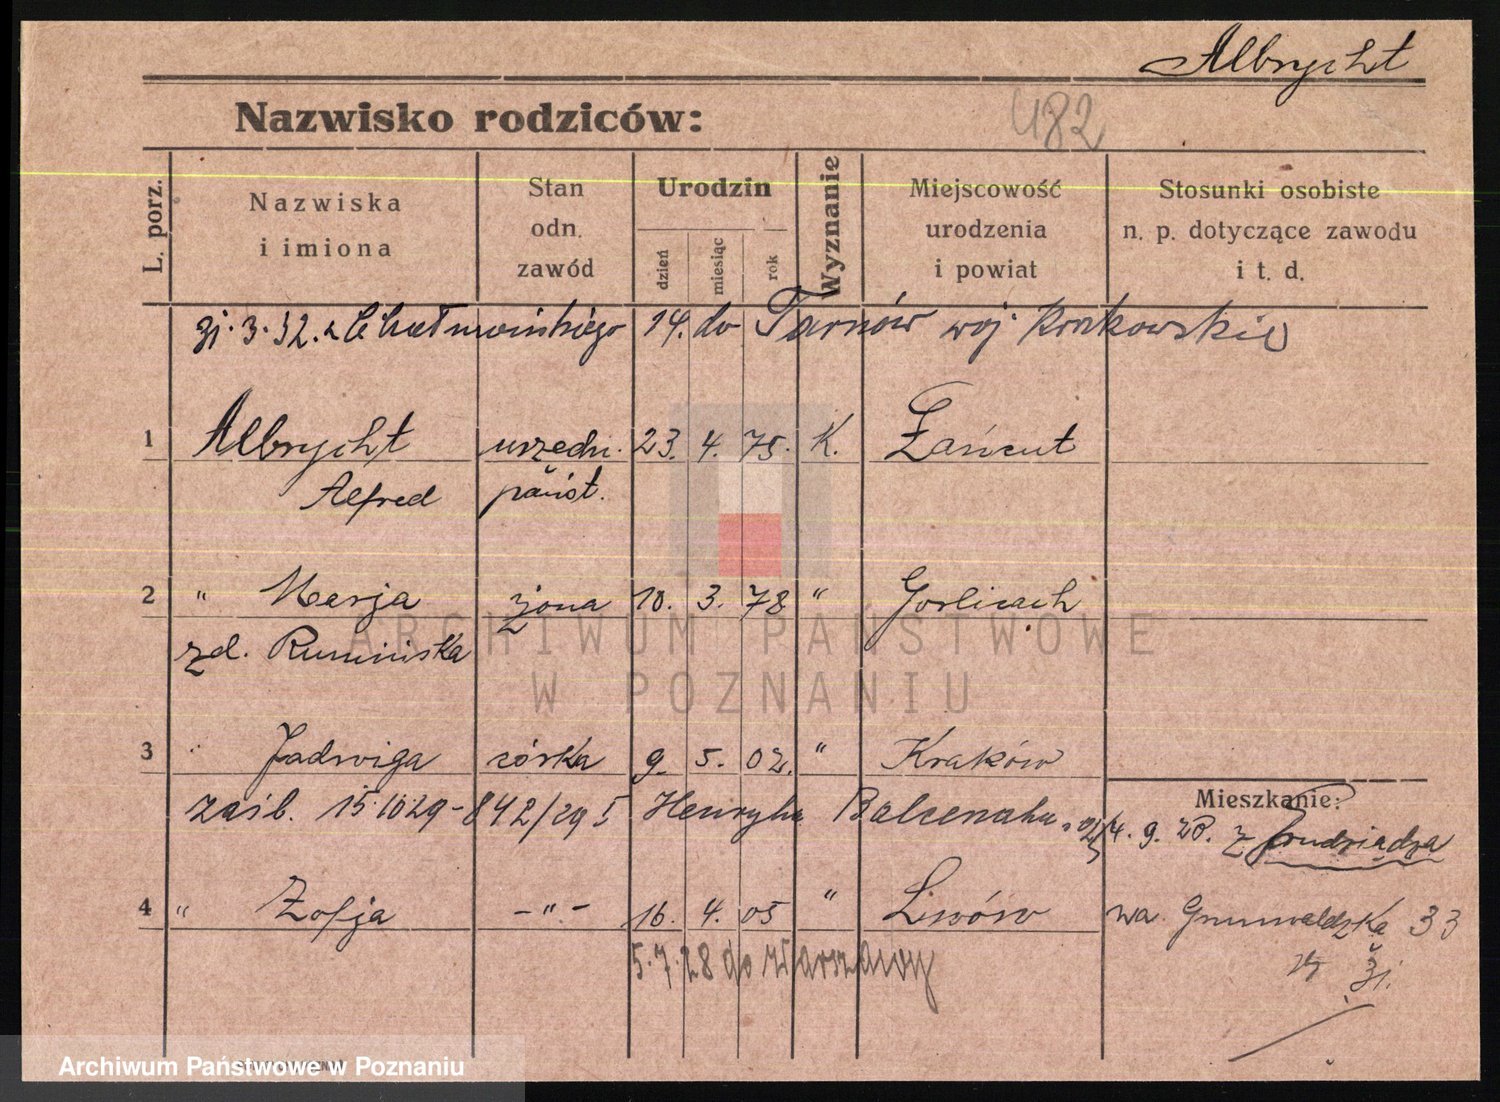 Albrycht
Nazwisko rodziców:
482
L. porz.
Nazwiska
i imiona
Stan
odn.
zawód
Urodzin
dzień
miesiąc
rok
Wyznanie
Miejscowość
urodzenia
i powiat
Stosunki osobiste
n. p. dotyczące zawodu
i t. d.
31.3.32. z Chełmońskiego 14. do Tarnów woj. Krakowskie
1 Albrycht urzędn. 23. 4. 75. K. Łańcut
Alfred państ.
2 " Marja żona 10. 3. 78 " Gorlicach
zd. Rumińska
3 " Jadwiga córka 9. 5. 02. " Kraków
Mieszkanie:
zaśl. 15.10 29 - 842/29 I Henryka
4. 9. 20. z Grudziądza
4 " Zofja - " - 16. 4. 05 " Lwów
Grunwaldzka 33
5.7.28 do Warszawy
ARCHIWUM PAŃSTWOWE
W POZNANIU
Archiwum Państwowe w Poznaniu